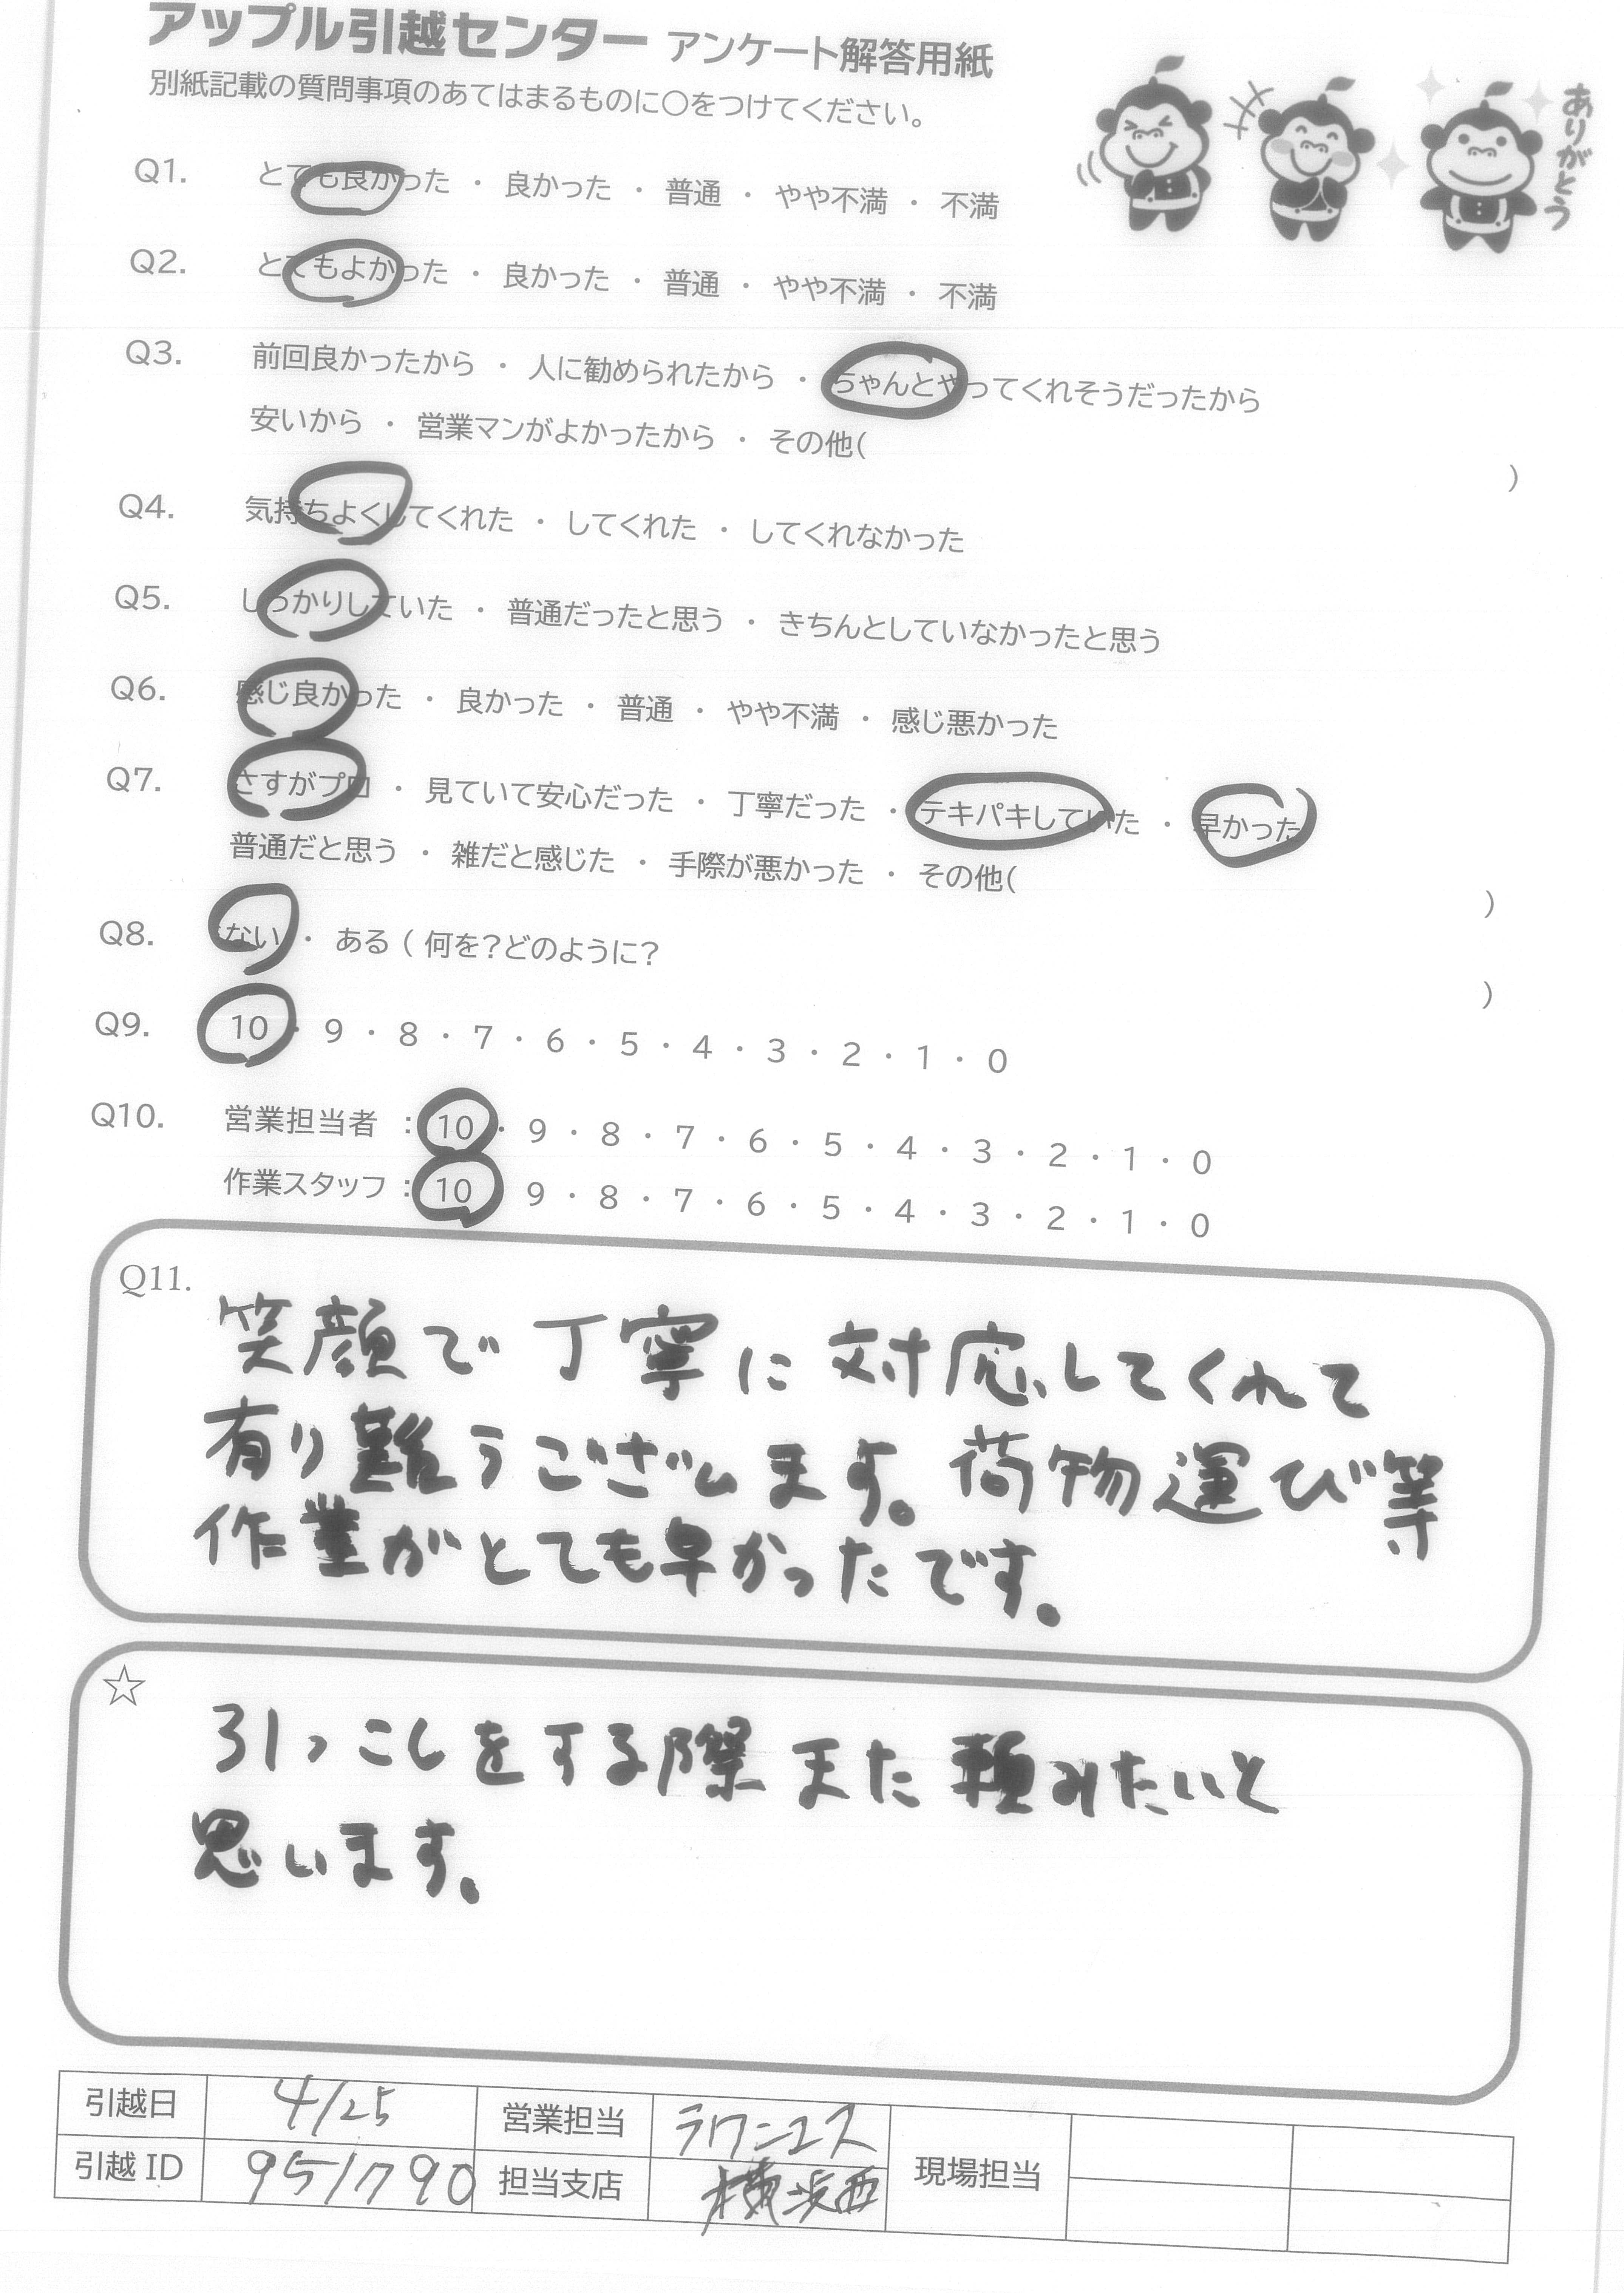 アップル引越センター アンケート解答用紙
別紙記載の質問事項のあてはまるものに○をつけてください。
ありがとう
Q1. とても良かった ・ 良かった ・ 普通 ・ やや不満 ・ 不満
Q2. とてもよかった ・ 良かった ・ 普通 ・ やや不満 ・ 不満
Q3. 前回良かったから ・ 人に勧められたから ・ ちゃんとやってくれそうだったから
安いから ・ 営業マンがよかったから ・ その他( )
Q4. 気持ちよくしてくれた ・ してくれた ・ してくれなかった
Q5. しっかりしていた ・ 普通だったと思う ・ きちんとしていなかったと思う
Q6. 感じ良かった ・ 良かった ・ 普通 ・ やや不満 ・ 感じ悪かった
Q7. さすがプロ ・ 見ていて安心だった ・ 丁寧だった ・ テキパキしていた ・ 早かった
普通だと思う ・ 雑だと感じた ・ 手際が悪かった ・ その他( )
Q8. ない ・ ある ( 何を?どのように? )
Q9. 10 ・ 9 ・ 8 ・ 7 ・ 6 ・ 5 ・ 4 ・ 3 ・ 2 ・ 1 ・ 0
Q10. 営業担当者 : 10 ・ 9 ・ 8 ・ 7 ・ 6 ・ 5 ・ 4 ・ 3 ・ 2 ・ 1 ・ 0
作業スタッフ : 10 ・ 9 ・ 8 ・ 7 ・ 6 ・ 5 ・ 4 ・ 3 ・ 2 ・ 1 ・ 0
Q11. 笑顔で丁寧に対応してくれて
有り難うございます。荷物運び等
作業がとても早かったです。
☆
引っこしをする際また頼みたいと
思います。
引越日 4/25 営業担当 現場担当
引越ID 951790 担当支店 横浜西